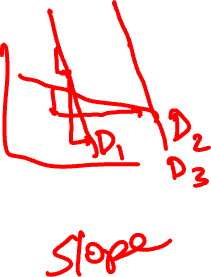 D1
D2
D3
Slope